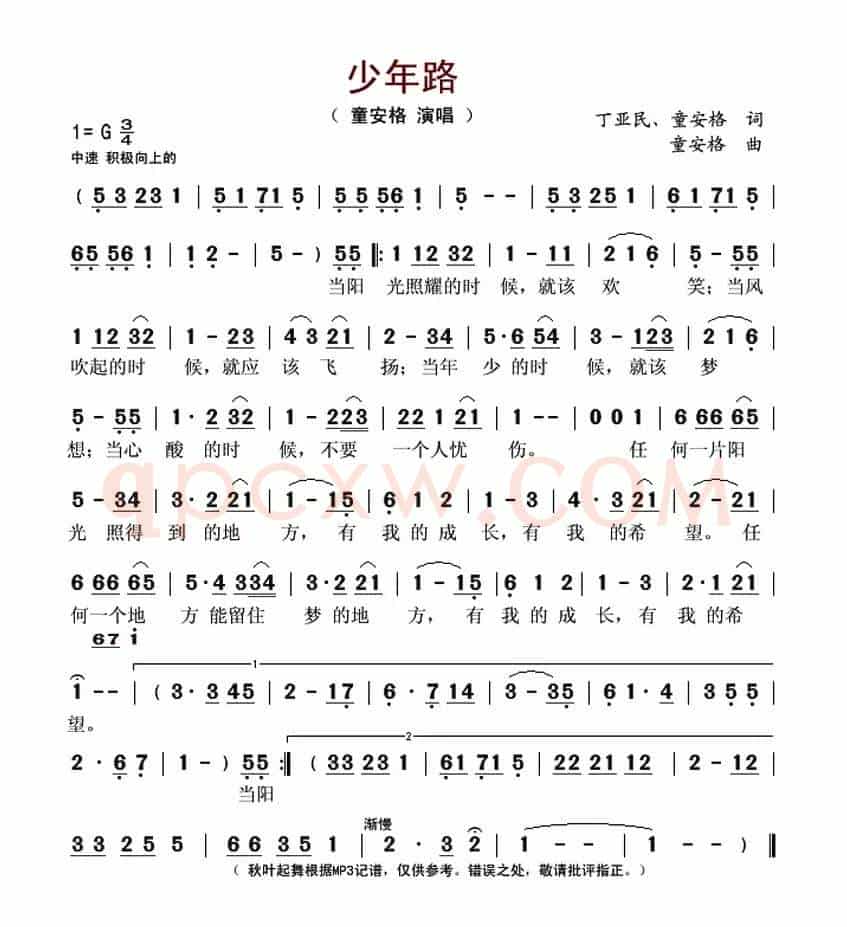 少年路
( 童安格 演唱 )
丁亚民、童安格 词
1= G 3/4
童安格 曲
中速 积极向上的
( 5 3 23 1 | 5 1 71 5 | 5 5 56 1 | 5 - - | 5 3 25 1 | 6 1 71 5 |
65 56 1 | 1 2 - | 5 - ) 55 ‖: 1 12 32 | 1 - 11 | 2 1 6 | 5 - 55 |
当阳 光照耀的时 候，就该 欢 笑；当风
1 12 32 | 1 - 23 | 4 3 21 | 2 - 34 | 5·6 54 | 3 - 123 | 2 1 6 |
吹起的时 候，就应 该 飞 扬；当年 少 的时 候，就该 梦
5 - 55 | 1·2 32 | 1 - 223 | 22 1 21 | 1 - - | 0 0 1 | 6 66 65 |
想；当心 酸 的时 候，不要 一个人忧 伤。 任 何一片阳
5 - 34 | 3·2 21 | 1 - 15 | 6 1 2 | 1 - 3 | 4·3 21 | 2 - 2 |
光 照得 到 的地 方，有 我 的 成 长，有 我 的希 望。任
6 66 65 | 5·4 334 | 3·2 21 | 1 - 15 | 6 1 2 | 1 - 3 | 2·1 21 |
何一个地 方 能留住 梦 的地 方，有 我 的 成 长，有 我 的希
67 i
1
1 - - | ( 3·3 45 | 2 - 17 | 6·7 14 | 3 - 35 | 6 1·4 | 3 5·5 |
望。
2
2 · 6 7 | 1 - ) 55 :‖ ( 33 23 1 | 61 71 5 | 22 21 12 | 2 - 12 |
当阳
渐慢
3 3 25 5 | 6 6 35 1 | 2 · 3 2 | 1 - - | 1 - - ) ‖
( 秋叶起舞根据MP3记谱，仅供参考。错误之处，敬请批评指正。)
qpcxw.COM